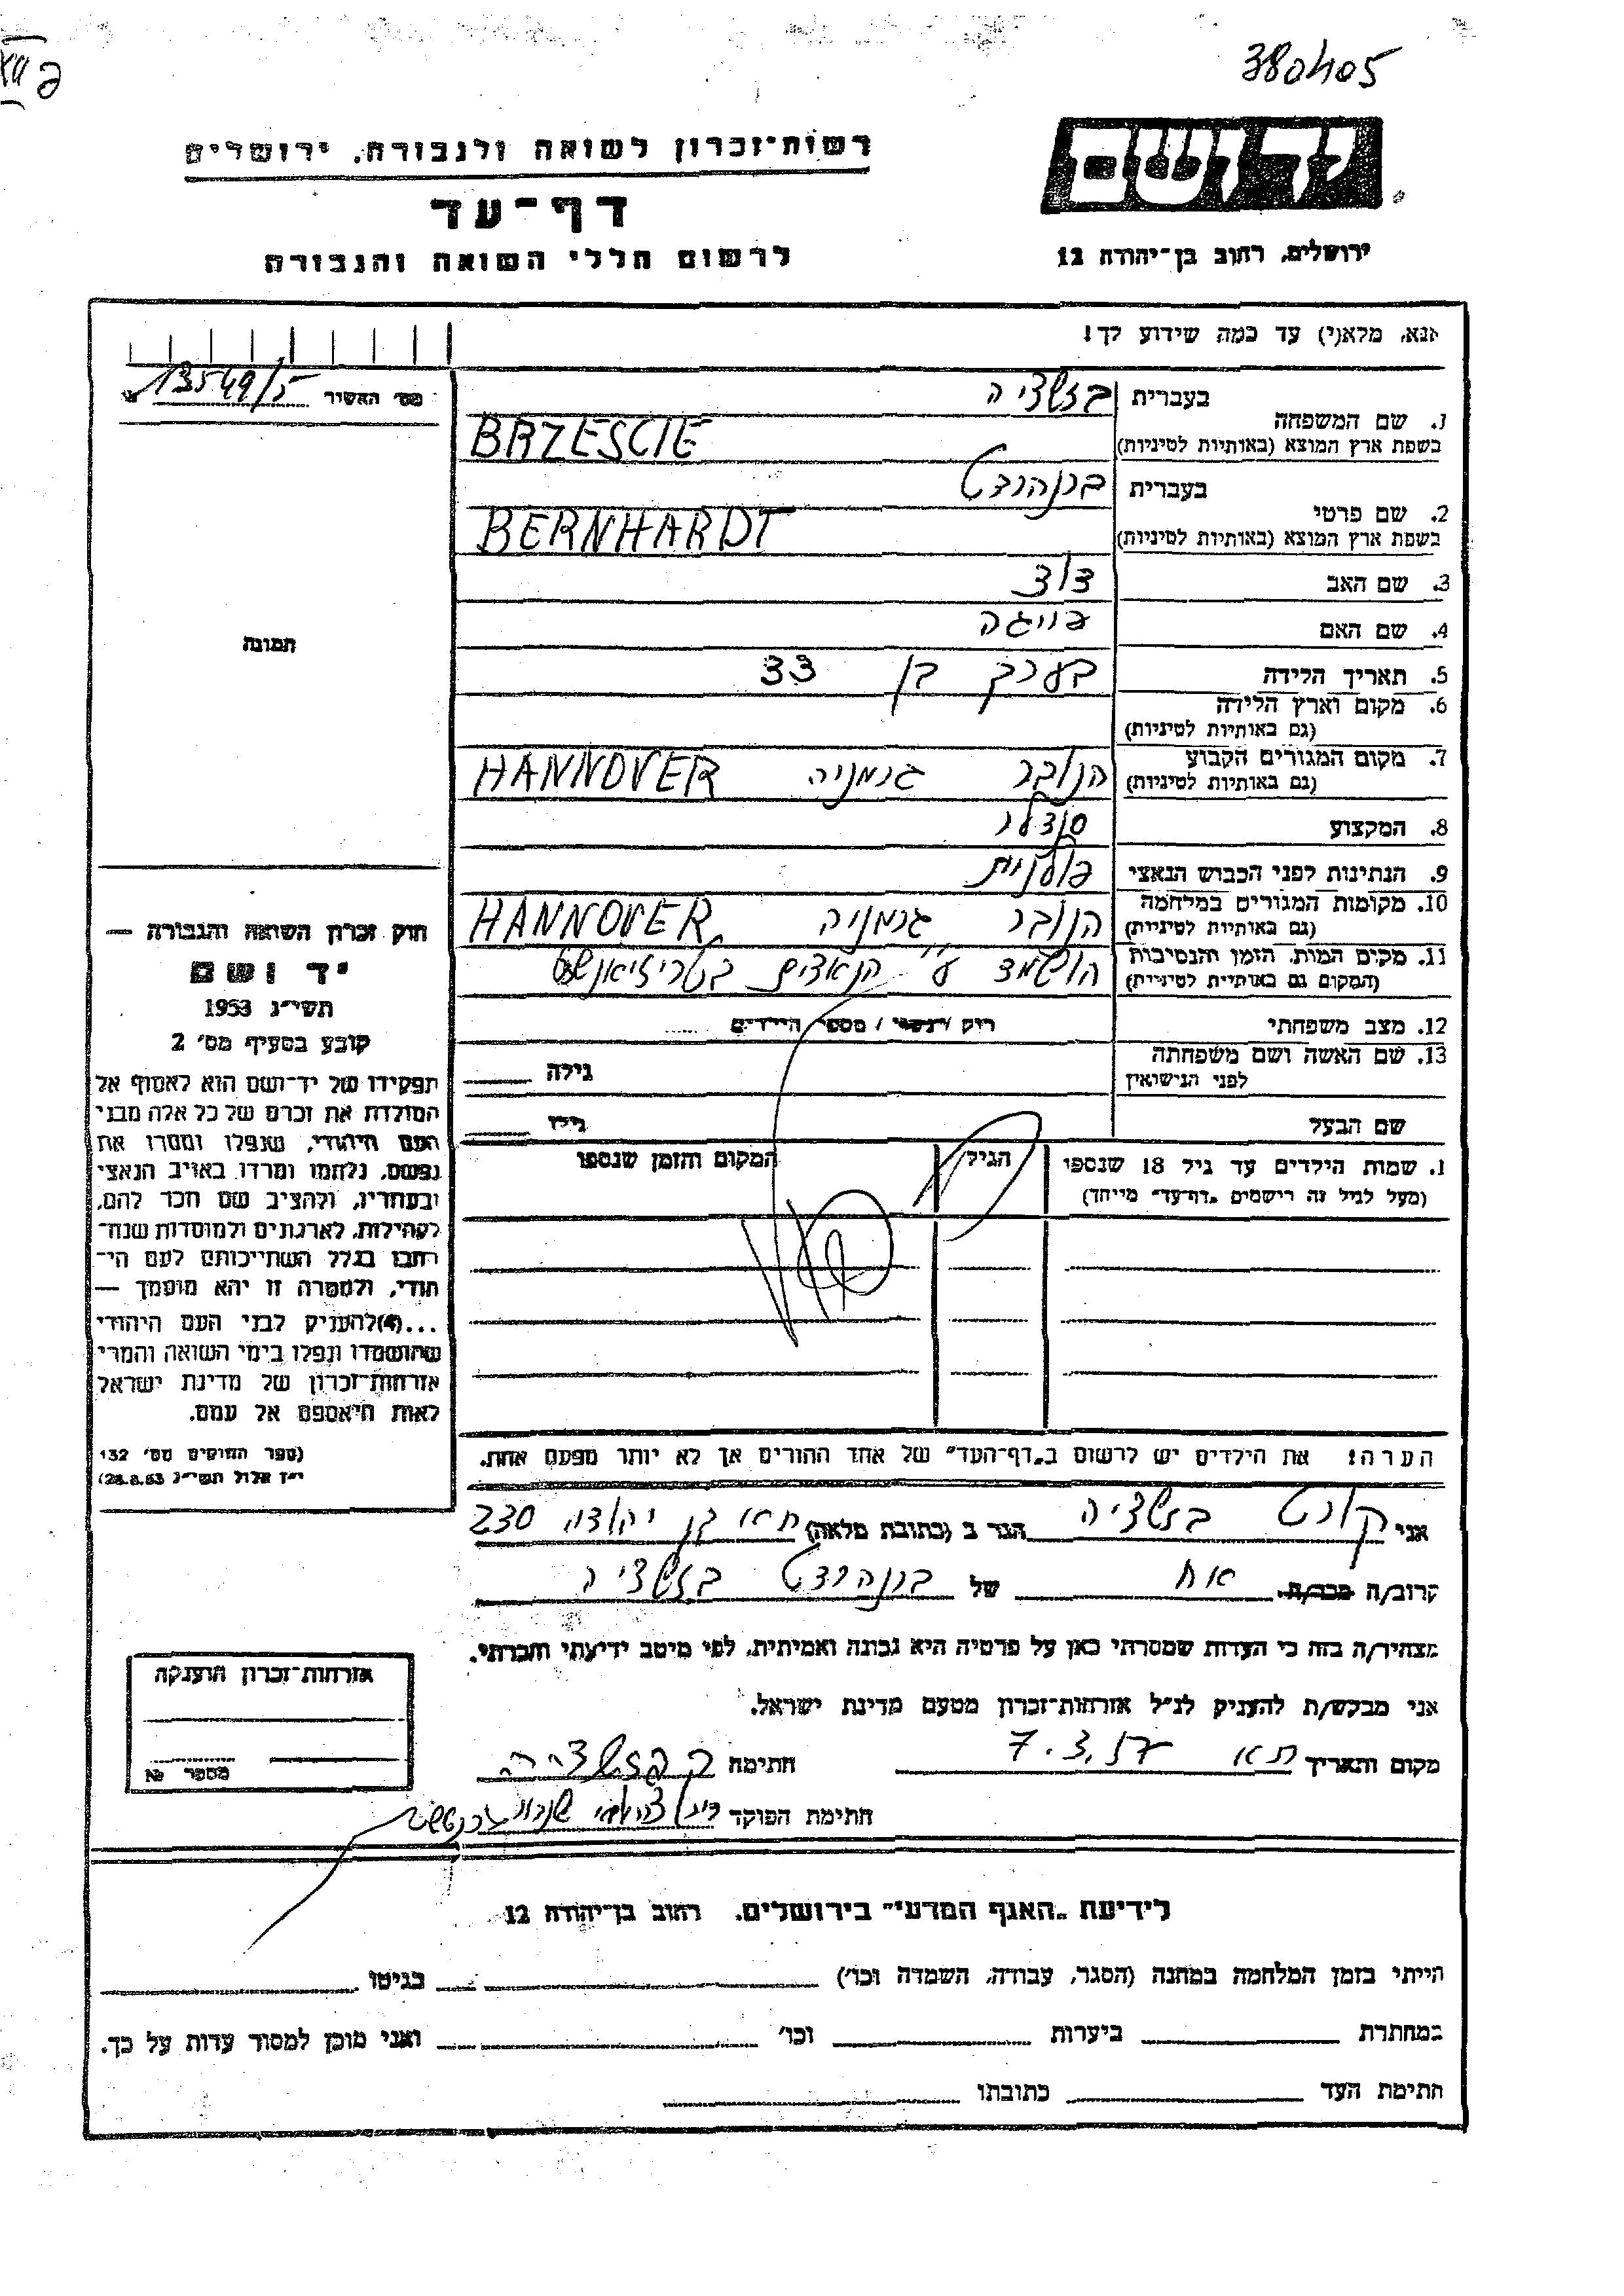 380405
רשות־זכרון לשואה ולגבורה, ירושלים
יד ושם
דף־עד
לרשום חללי השואה והגבורה
ירושלים, רחוב בן־יהודה 12
אנא, מלא(י) עד כמה שידוע לך!
מס' האשיר 13549/5
1. שם המשפחה
בעברית בזשציה
בשפת ארץ המוצא (באותיות לטיניות) BRZESCIE
2. שם פרטי
בעברית ברנהרדט
בשפת ארץ המוצא (באותיות לטיניות) BERNHARDT
3. שם האב דוד
4. שם האם
5. תאריך הלידה בערך בן 33
6. מקום וארץ הלידה
(גם באותיות לטיניות)
7. מקום המגורים הקבוע הנובר גרמניה HANNOVER
(גם באותיות לטיניות)
8. המקצוע סנדלר
9. הנתינות לפני הכבוש הנאצי פולנית
10. מקומות המגורים במלחמה הנובר גרמניה HANNOVER
(גם באותיות לטיניות)
11. מקום המות, הזמן והנסיבות הושמד ע"י הנאצים
(המקום גם באותיות לטיניות)
12. מצב משפחתי רווק / נשוי / מספר הילדים
13. שם האשה ושם משפחתה
לפני הנישואין גילה
שם הבעל גילו
1. שמות הילדים עד גיל 18 שנספו הגיל המקום והזמן שנספו
(מעל לגיל זה רישמים „דף־עד" מייחד)
הערה! את הילדים יש לרשום ב„דף־העד" של אחד ההורים אך לא יותר מפעם אחת.
תמונה
חוק זכרון השואה והגבורה —
יד ושם
תשי"ג 1953
קובע בסעיף מס' 2
תפקידו של יד־ושם הוא לאסוף אל
המולדת את זכרם של כל אלה מבני
העם היהודי, שנפלו ומסרו את
נפשם, נלחמו ומרדו באויב הנאצי
ובעוזריו, ולהציב שם וזכר להם,
לקהילות, לארגונים ולמוסדות שנח־
רבו בגלל השתייכותם לעם הי־
הודי, ולמטרה זו יהא מוסמך —
...(4) להעניק לבני העם היהודי
שהושמדו ונפלו בימי השואה והמרי
אזרחות־זכרון של מדינת ישראל
לאות היאספם אל עמם.
(ספר החוקים מס' 132
י"ז אלול תשי"ג 28.8.53)
אני קורט בזשציה הגר ב (כתובת מלאה) ת"א בן יהודה 230
קרוב/ה מכר/ה אח של ברנהרדט בזשציה
מצהיר/ה בזה כי העדות שמסרתי כאן על פרטיה היא נכונה ואמיתית, לפי מיטב ידיעתי והכרתי.
אני מבקש/ת להעניק לנ"ל אזרחות־זכרון מטעם מדינת ישראל.
מקום ותאריך ת"א 7.3.57 חתימה ק בזשציה
חתימת הפוקד
אזרחות־זכרון הוענקה
מספר №
לידיעת „האגף המדעי" בירושלים, רחוב בן־יהודה 12
הייתי בזמן המלחמה במחנה (הסגר, עבודה, השמדה וכו') בגיטו
במחתרת ביערות וכו' ואני מוכן למסור עדות על כך.
חתימת העד כתובתו